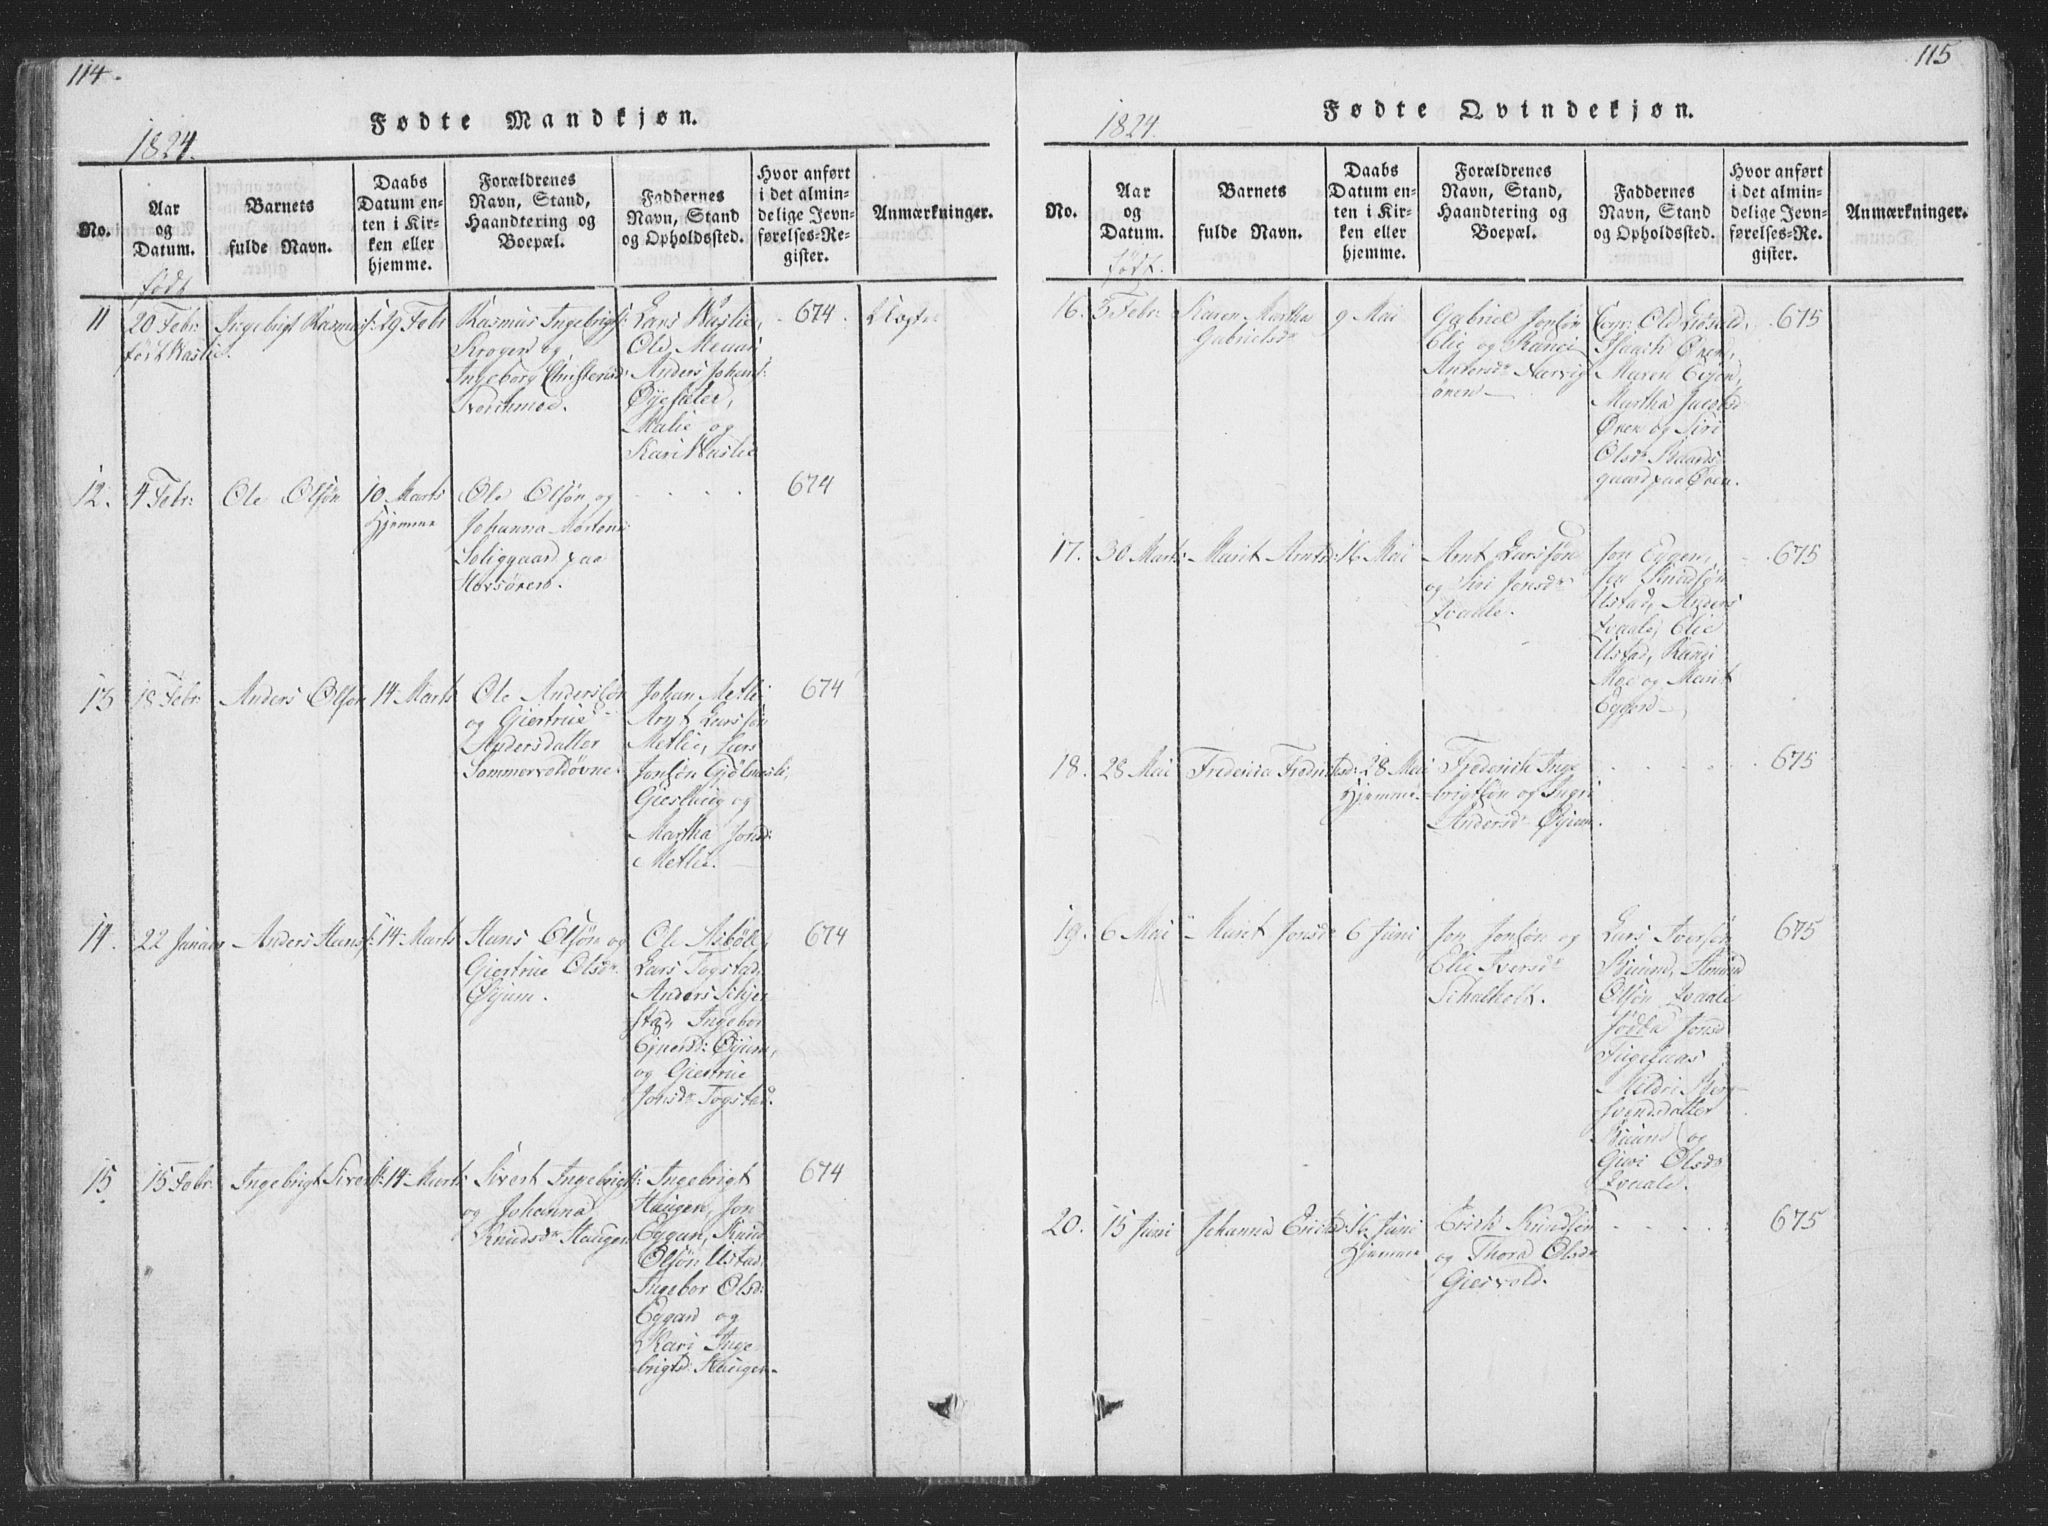 114.
Fødte Mandkjøn.
1824.
No.
Aar
og
Datum.
Barnets
fulde Navn.
Daabs
Datum en-
ten i Kir-
ken eller
hjemme.
Forældrenes
Navn, Stand,
Haandtering og
Boepæl.
Faddernes
Navn, Stand
og Opholdssted.
Hvor anført
i det almin-
delige Jevn-
førelses-Re-
gister.
Anmærkninger.
født
11
20 Febr:
Ingebrigt Rasmusf:
29 Febr
Rasmus Ingebrigtf:
Krogen og
Ingeborg Christensd:
Lars Waslie,
Ole
Anders Johanf:
Øyesæter,
Malie og
Kari Waslie
674.
12.
4 Febr:
Ole Olsøn
10 Marts
Hjemme
Ole Olsøn og
Johanna Mortens:
paa
674
13
18 Febr:
Anders Olsøn
14 Marts
Ole Andersøn
og Giertrue
Andersdatter
Johan Metlie
Arnt Larssøn
Metlie, Lars
Jonsøn Gjølmesli,
og
Martha Jonsd:
Metlie.
674
14.
22 Januar
Anders Hansf:
14 Marts
Hans Olsøn og
Giertrue Olsdr
Øyum.
Ole Asbøle,
Lars Togstad,
Anders Schjen
stad, Ingebor
Ejnersd: Øyum,
og Giertrue
Jonsdr Togstad.
674
15
15 Febr:
Ingebrigt Sivertf:
14 Marts:
Sivert Ingebrigtf:
og Johanna
Knudsdr Haugen
Ingebrigt
Haugen, Jon
Eggen, Knud
Olsøn Ustad,
Ingebor Olsd:
Eggen og
Kari Inge-
brigtsd: Haugen.
674
115
Fødte Qvindekjøn.
1824.
No.
Aar
og
Datum.
Barnets
fulde Navn.
Daabs
Datum en-
ten i Kir-
ken eller
hjemme.
Forældrenes
Navn, Stand,
Haandtering og
Boepæl.
Faddernes
Navn, Stand
og Opholdssted.
Hvor anført
i det almin-
delige Jevn-
førelses-Re-
gister.
Anmærkninger.
født.
16.
5 Febr:
Karen Martha
Gabrielsdr
9 Mai
Gabriel Jonsøn
Elie og Rangi
Andersdr Nærvig
ören
Ole
Isach Øren,
Maren Eggen,
Martha Jacobsd
Øren og Siri
Olsdr Baards-
gaard paa Øren.
675
17.
30 Marts:
Marit Arntsd:
16 Mai
Arnt Larssøn
og Siri Jonsdr
Evaale.
Jon Eggen,
Jon Knudsøn
Ustad, Anders
Evaale, Elie
Ustad, Rangi
Moe og Marit
Eggen
675
18.
28 Mai
28 Mai
Hjemme
Frederich Inge
brigtsøn og Ingri
Andersdr Øyum.
675
19.
6 Mai
Marit Jonsdr
6 Juni
Jon Jonsøn og
Elie Iversdr
Schalholt.
Lars Iversøn
Buund, Amund
Olsøn Evaale
Jonsd
Fugelaas
Mildri Ber-
svendsdatter
Buund og
Guri Olsdr
Evaale.
675
20.
15 Juni
Johanna Ericsd:
16 Juni
Hjemme
Erich Knudsøn
og Thora Olsdr
Giesvold.
675